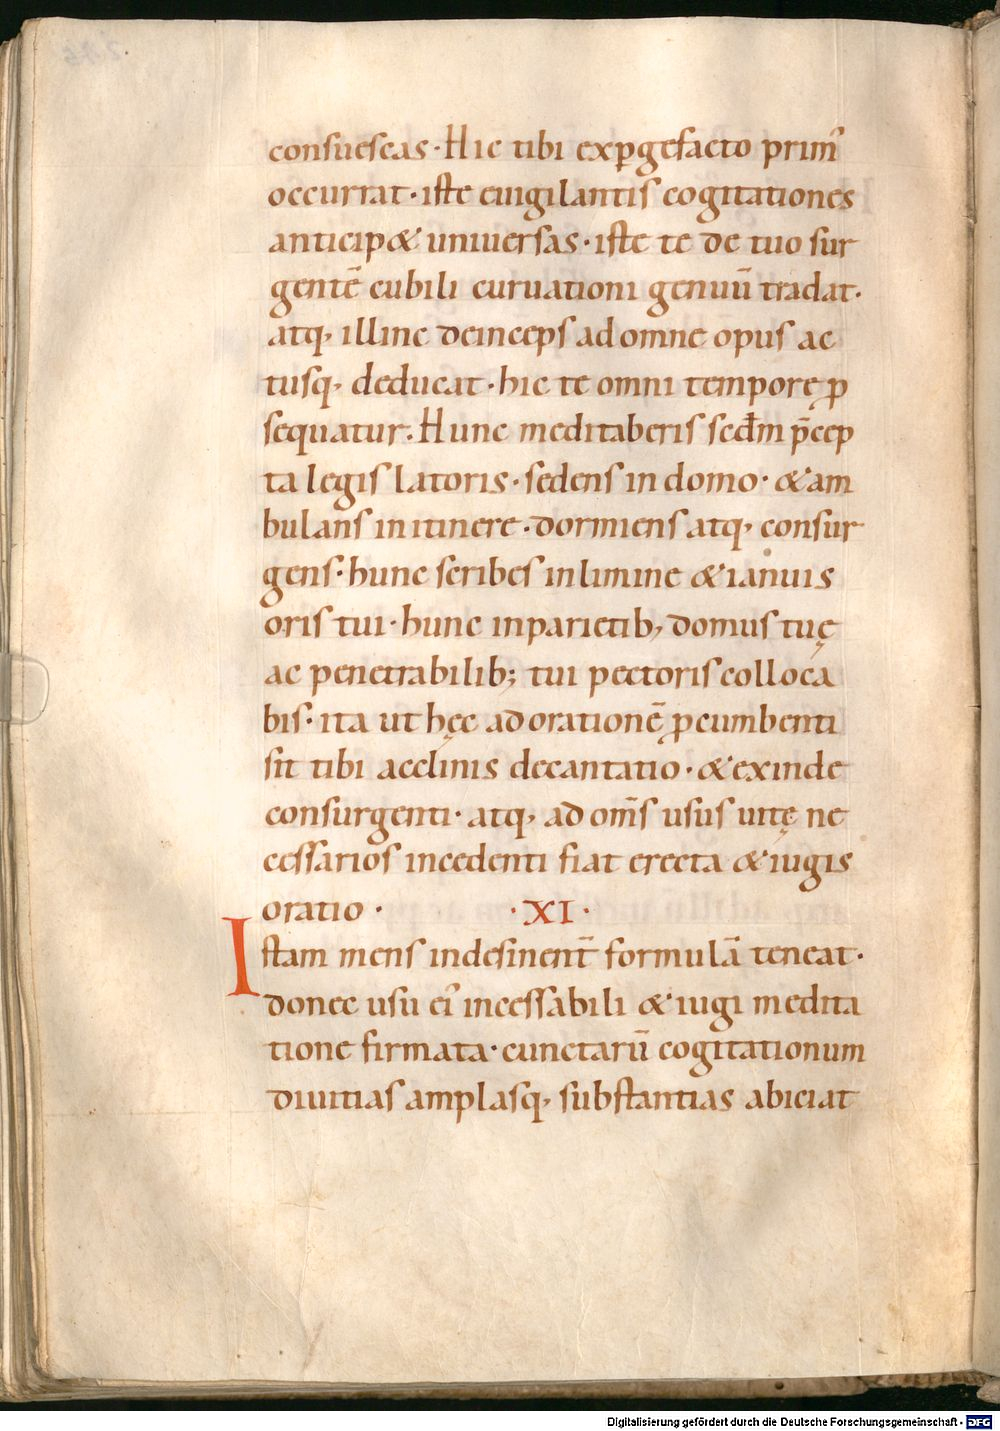 consuescas · Hic tibi exp̱gefacto prim᷒
occurrat · iste euigilantis cogitationes
anticip& uniuersas · iste te de tuo sur
gentē cubili curuationi genuū tradat ·
atq, illinc deinceps ad omne opus ac
tusq, deducat · hic te omni tempore ꝑ
sequatur. Hunc meditaberis secđm p̄cep
ta legis latoris · sedens in domo · & am
bulans in itinere · dormiens atq, consur
gens · hunc scribes in limine & ianuis
oris tui · hunc in parietib, domus tuę
ac penetrabilib; tui pectoris colloca
bis · ita ut hęc ad orationē ꝓcumbenti
sit tibi acclinis decantatio · & exinde
consurgenti · atq, ad om̄s usus uitę ne
cessarios incedenti fiat erecta & iugis
oratio · · XI ·
Istam mens indesinent̄ formulā teneat ·
donec usu ei᷒ incessabili & iugi medita
tione firmata · cunctarū cogitationum
diuitias amplasq, substantias abiciat
Digitalisierung gefördert durch die Deutsche Forschungsgemeinschaft - DFG